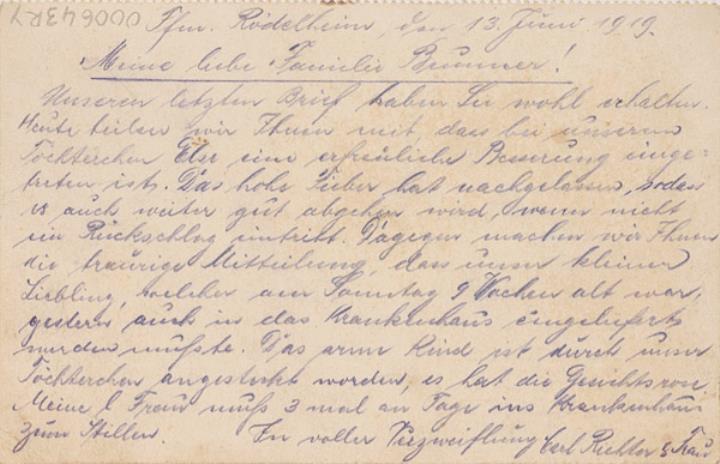 000643R7
Ffm. Rödelheim, den 13. Juni 1919.
Meine liebe Familie Brunner!
Unseren letzten Brief haben Sie wohl erhalten.
Heute teilen wir Ihnen mit, dass bei unserem
Töchterchen Else eine erfreuliche Besserung einge-
treten ist. Das hohe Fieber hat nachgelassen, sodass
es auch weiter gut abgehen wird, wenn nicht
ein Rückschlag eintritt. Dagegen machen wir Ihnen
die traurige Mitteilung, dass unser kleiner
Liebling, welcher am Sonntag 9 Wochen alt war,
gestern auch in das Krankenhaus eingeliefert
werden mußte. Das arme Kind ist durch unser
Töchterchen angesteckt worden, es hat die Gesichtsrose
Meine l. Frau muß 3 mal am Tage ins Krankenhaus
zum Stillen. In voller Verzweiflung Carl Richter & Frau